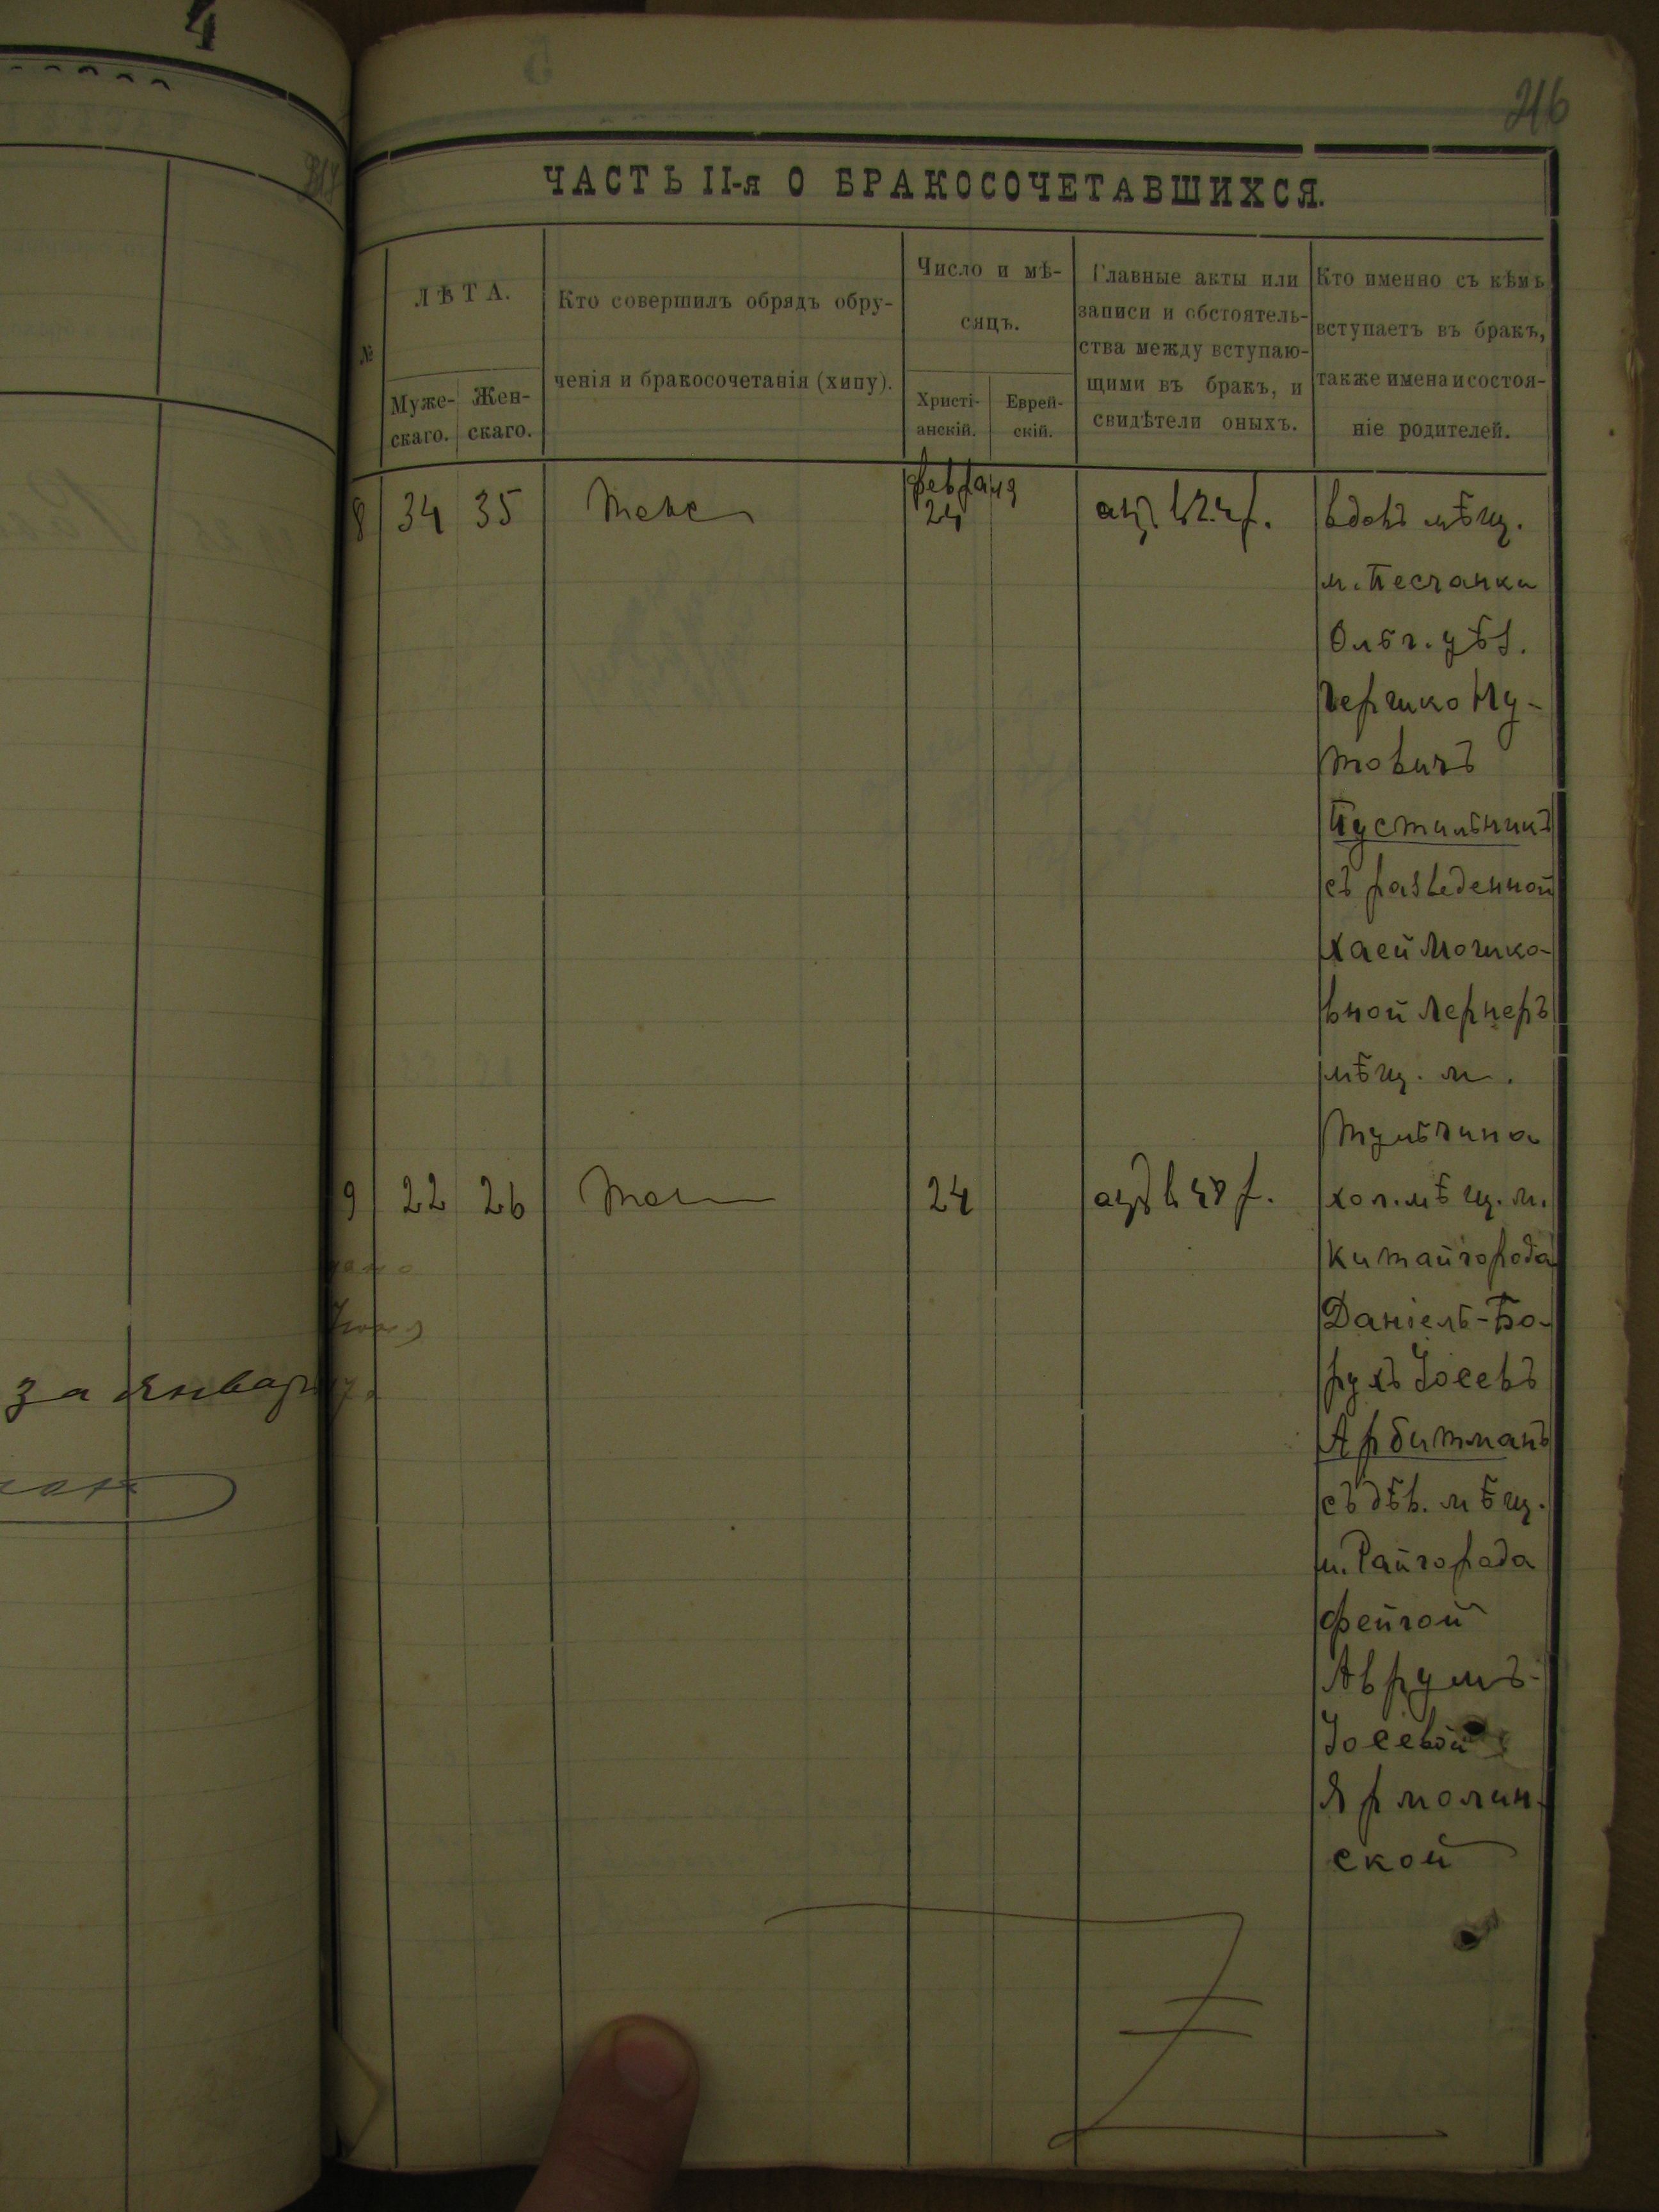 4
246
ЧАСТЬ II-я О БРАКОСОЧЕТАВШИХСЯ.
№
ЛѢТА.
Муже-
скаго.
Жен-
скаго.
Кто совершилъ обрядъ обру-
ченія и бракосочетанія (хипу).
Число и мѣ-
сяцъ.
Христі-
анскій.
Еврей-
скій.
Главные акты или
записи и обстоятель-
ства между вступаю-
щими въ бракъ, и
свидѣтели оныхъ.
Кто именно съ кѣмъ
вступаетъ въ бракъ,
также имена и состоя-
ніе родителей.
8
34
35
февраля
24
вдовъ мѣщ.
м. Песчанки
Ольг. уѣз.
Гершко Ну-
товичъ
Пустильникъ
съ разведенной
Хаей Мошко-
вной Лернеръ
мѣщ. м.
Тульчина
9
22
26
24
хол. мѣщ. м.
Китайгорода
Даніель-Бо-
рухъ Іосевъ
Арбитманъ
съ дѣв. мѣщ.
м. Райгорода
Фейгой
Аврумъ-
Іосевой
Ярмолин-
ской
за январь